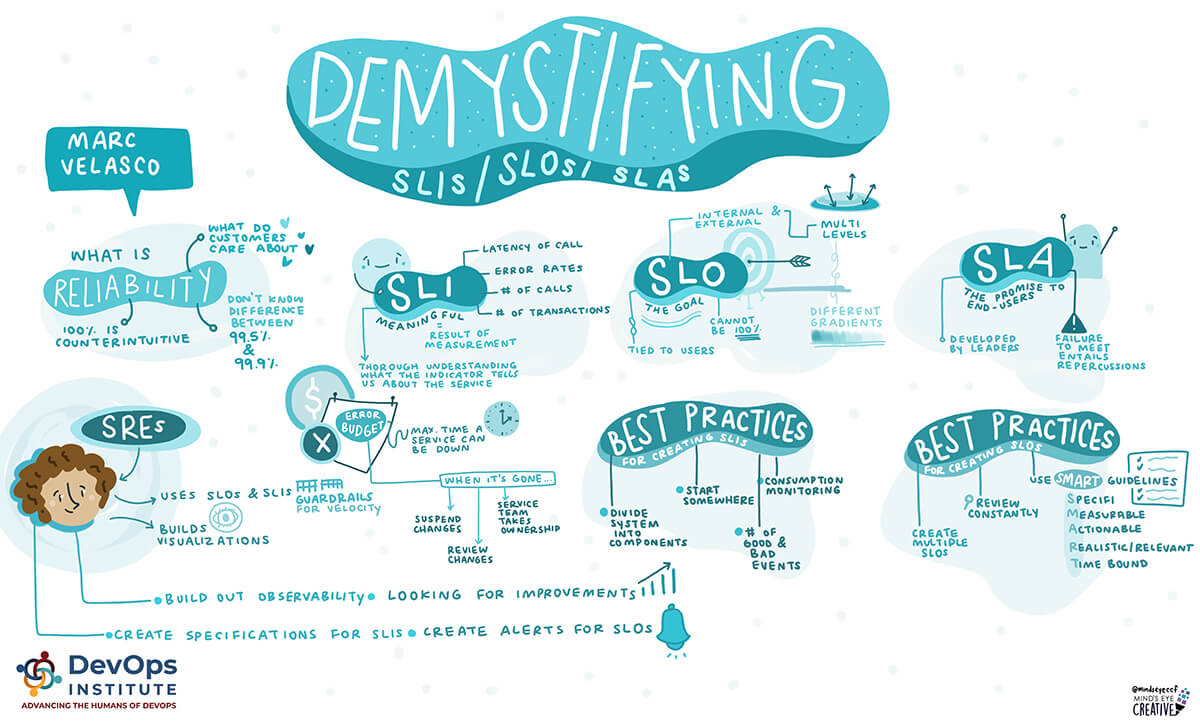 DEMYSTIFYING
SLIs/SLOs/SLAs
MARC
VELASCO
WHAT IS
RELIABILITY
WHAT DO
CUSTOMERS
CARE ABOUT
100% IS
COUNTERINTUITIVE
DON'T KNOW
DIFFERENCE
BETWEEN
99.5%
&
99.9%
SLI
LATENCY OF CALL
ERROR RATES
# OF CALLS
# OF TRANSACTIONS
MEANINGFUL
= RESULT OF
MEASUREMENT
THOROUGH UNDERSTANDING
WHAT THE INDICATOR TELLS
US ABOUT THE SERVICE
INTERNAL &
EXTERNAL
MULTI
LEVELS
SLO
THE GOAL
CANNOT
BE 100%
TIED TO USERS
DIFFERENT
GRADIENTS
SLA
THE PROMISE TO
END-USERS
DEVELOPED
BY LEADERS
FAILURE
TO MEET
ENTAILS
REPERCUSSIONS
SREs
USES SLOS & SLIS
BUILDS
VISUALIZATIONS
BUILD OUT OBSERVABILITY
LOOKING FOR IMPROVEMENTS
CREATE SPECIFICATIONS FOR SLIS
CREATE ALERTS FOR SLOS
$
X
ERROR
BUDGET
MAX. TIME A
SERVICE CAN
BE DOWN
GUARDRAILS
FOR VELOCITY
WHEN IT'S GONE...
SUSPEND
CHANGES
REVIEW
CHANGES
SERVICE
TEAM
TAKES
OWNERSHIP
BEST PRACTICES
FOR CREATING SLIS
DIVIDE
SYSTEM
INTO
COMPONENTS
START
SOMEWHERE
# OF
GOOD &
BAD
EVENTS
CONSUMPTION
MONITORING
BEST PRACTICES
FOR CREATING SLOS
CREATE
MULTIPLE
SLOS
REVIEW
CONSTANTLY
USE SMART GUIDELINES
SPECIFI
MEASURABLE
ACTIONABLE
REALISTIC/RELEVANT
TIME BOUND
DevOps
INSTITUTE
ADVANCING THE HUMANS OF DEVOPS
@mindseyeccf
MIND'S EYE
CREATIVE